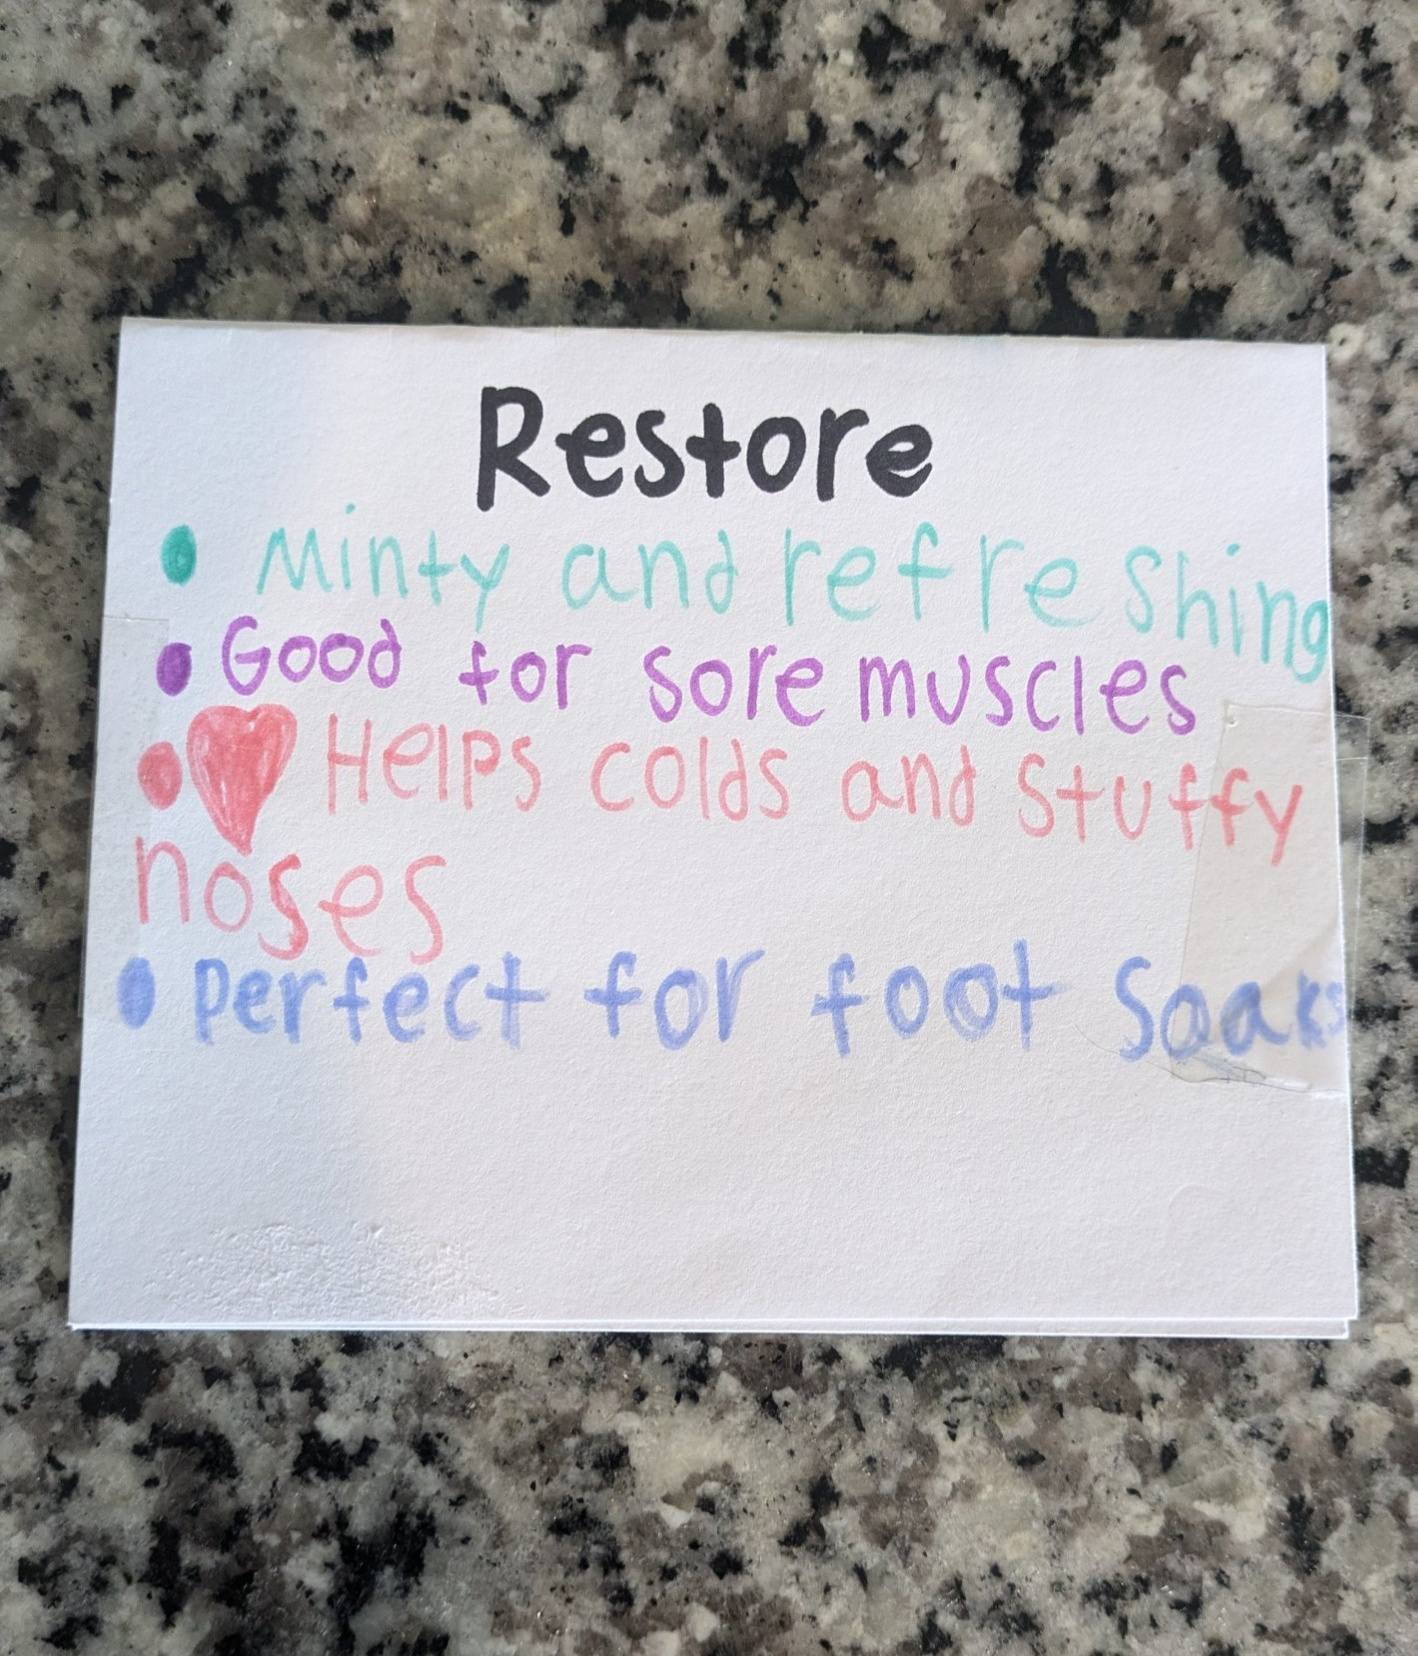 Restore
• Minty and refreshing
• Good for sore muscles
• Helps colds and stuffy
noses
• Perfect for foot soaks